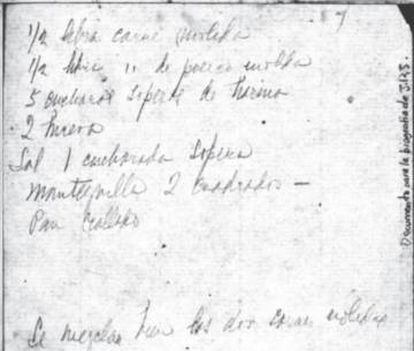 7
1/2 libra carne molida
1/2 libra " de puerco molida
5 cucharas soperas de harina
2 huevo
Sal 1 cucharada sopera
Mantequilla 2 cuadrados —
Pan rallado
Se mezclan bien las dos carnes molidas
Documento para la biografía de